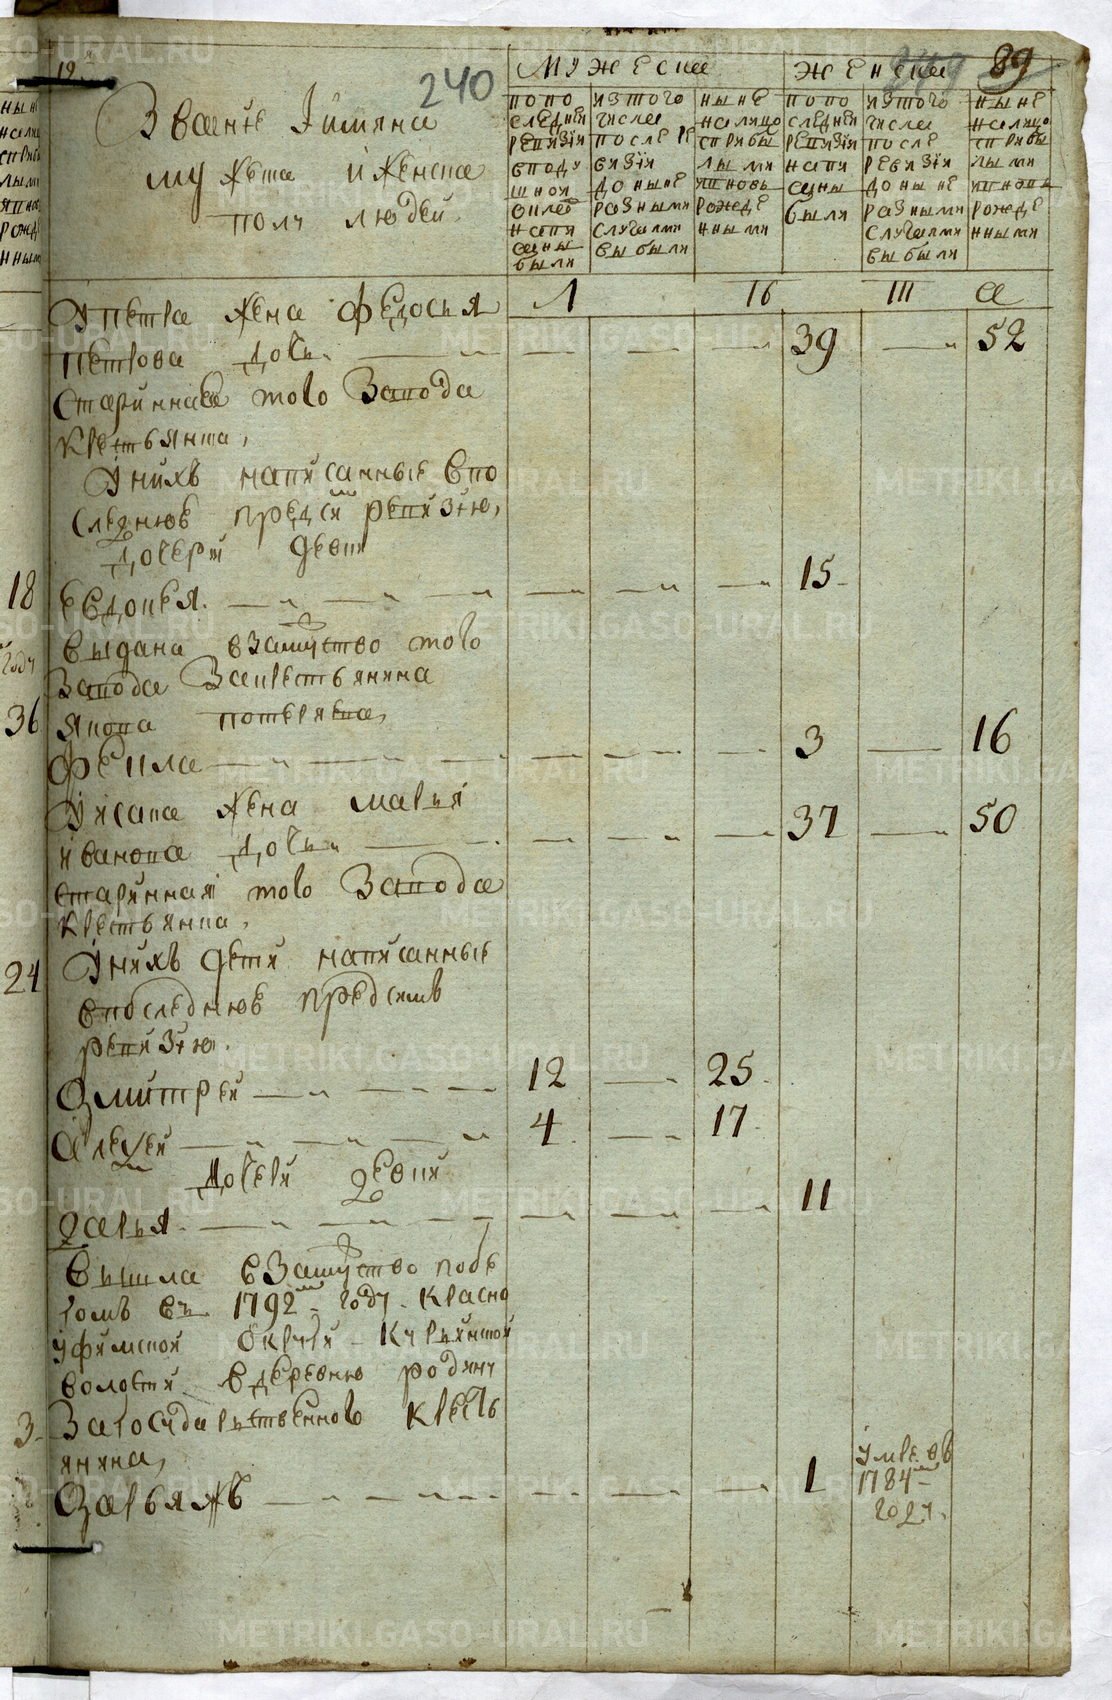 240
89
МУЖЕСКА
ЖЕНСКА
Званiе Iимяна
мужеска иженска
полу людей
по по следней ревизiи в подушной окладе написаны были
из того числа после ревизiи до ныне разными случаями выбыли
ныне налицо с прибылыми и вновь рожденными
по последней ревизiи написаны были
из того числа после ревизiи до ныне разными случаями выбыли
ныне налицо с прибылыми и вновь рожденными
Упетра жена Федосья
петрова дочь 39 52
Стариннаго того завода
крестьянина,
Унихъ написанные впо
следнюю предсей ревизiю,
дочери девки
Евдокья 15
выдана взамуство того
завода закрестьянина
якова
Фекла 3 16
Уисака жена марья
иванова дочь 37 50
старинная того завода
крестьянка,
Унихъ дети написанные
впоследнюю предсимъ
ревизiю.
Дмитрей 12 25
Алексей 4 17
дочери девки
дарья 11
вышла взамуство побе
гомъ въ 1792м году Красно
уфимской округи
волости вдеревню родину
загосударственного кресть
янина,
Дарьяжъ 1
умре въ
1784м
году
18
году
36
24
3